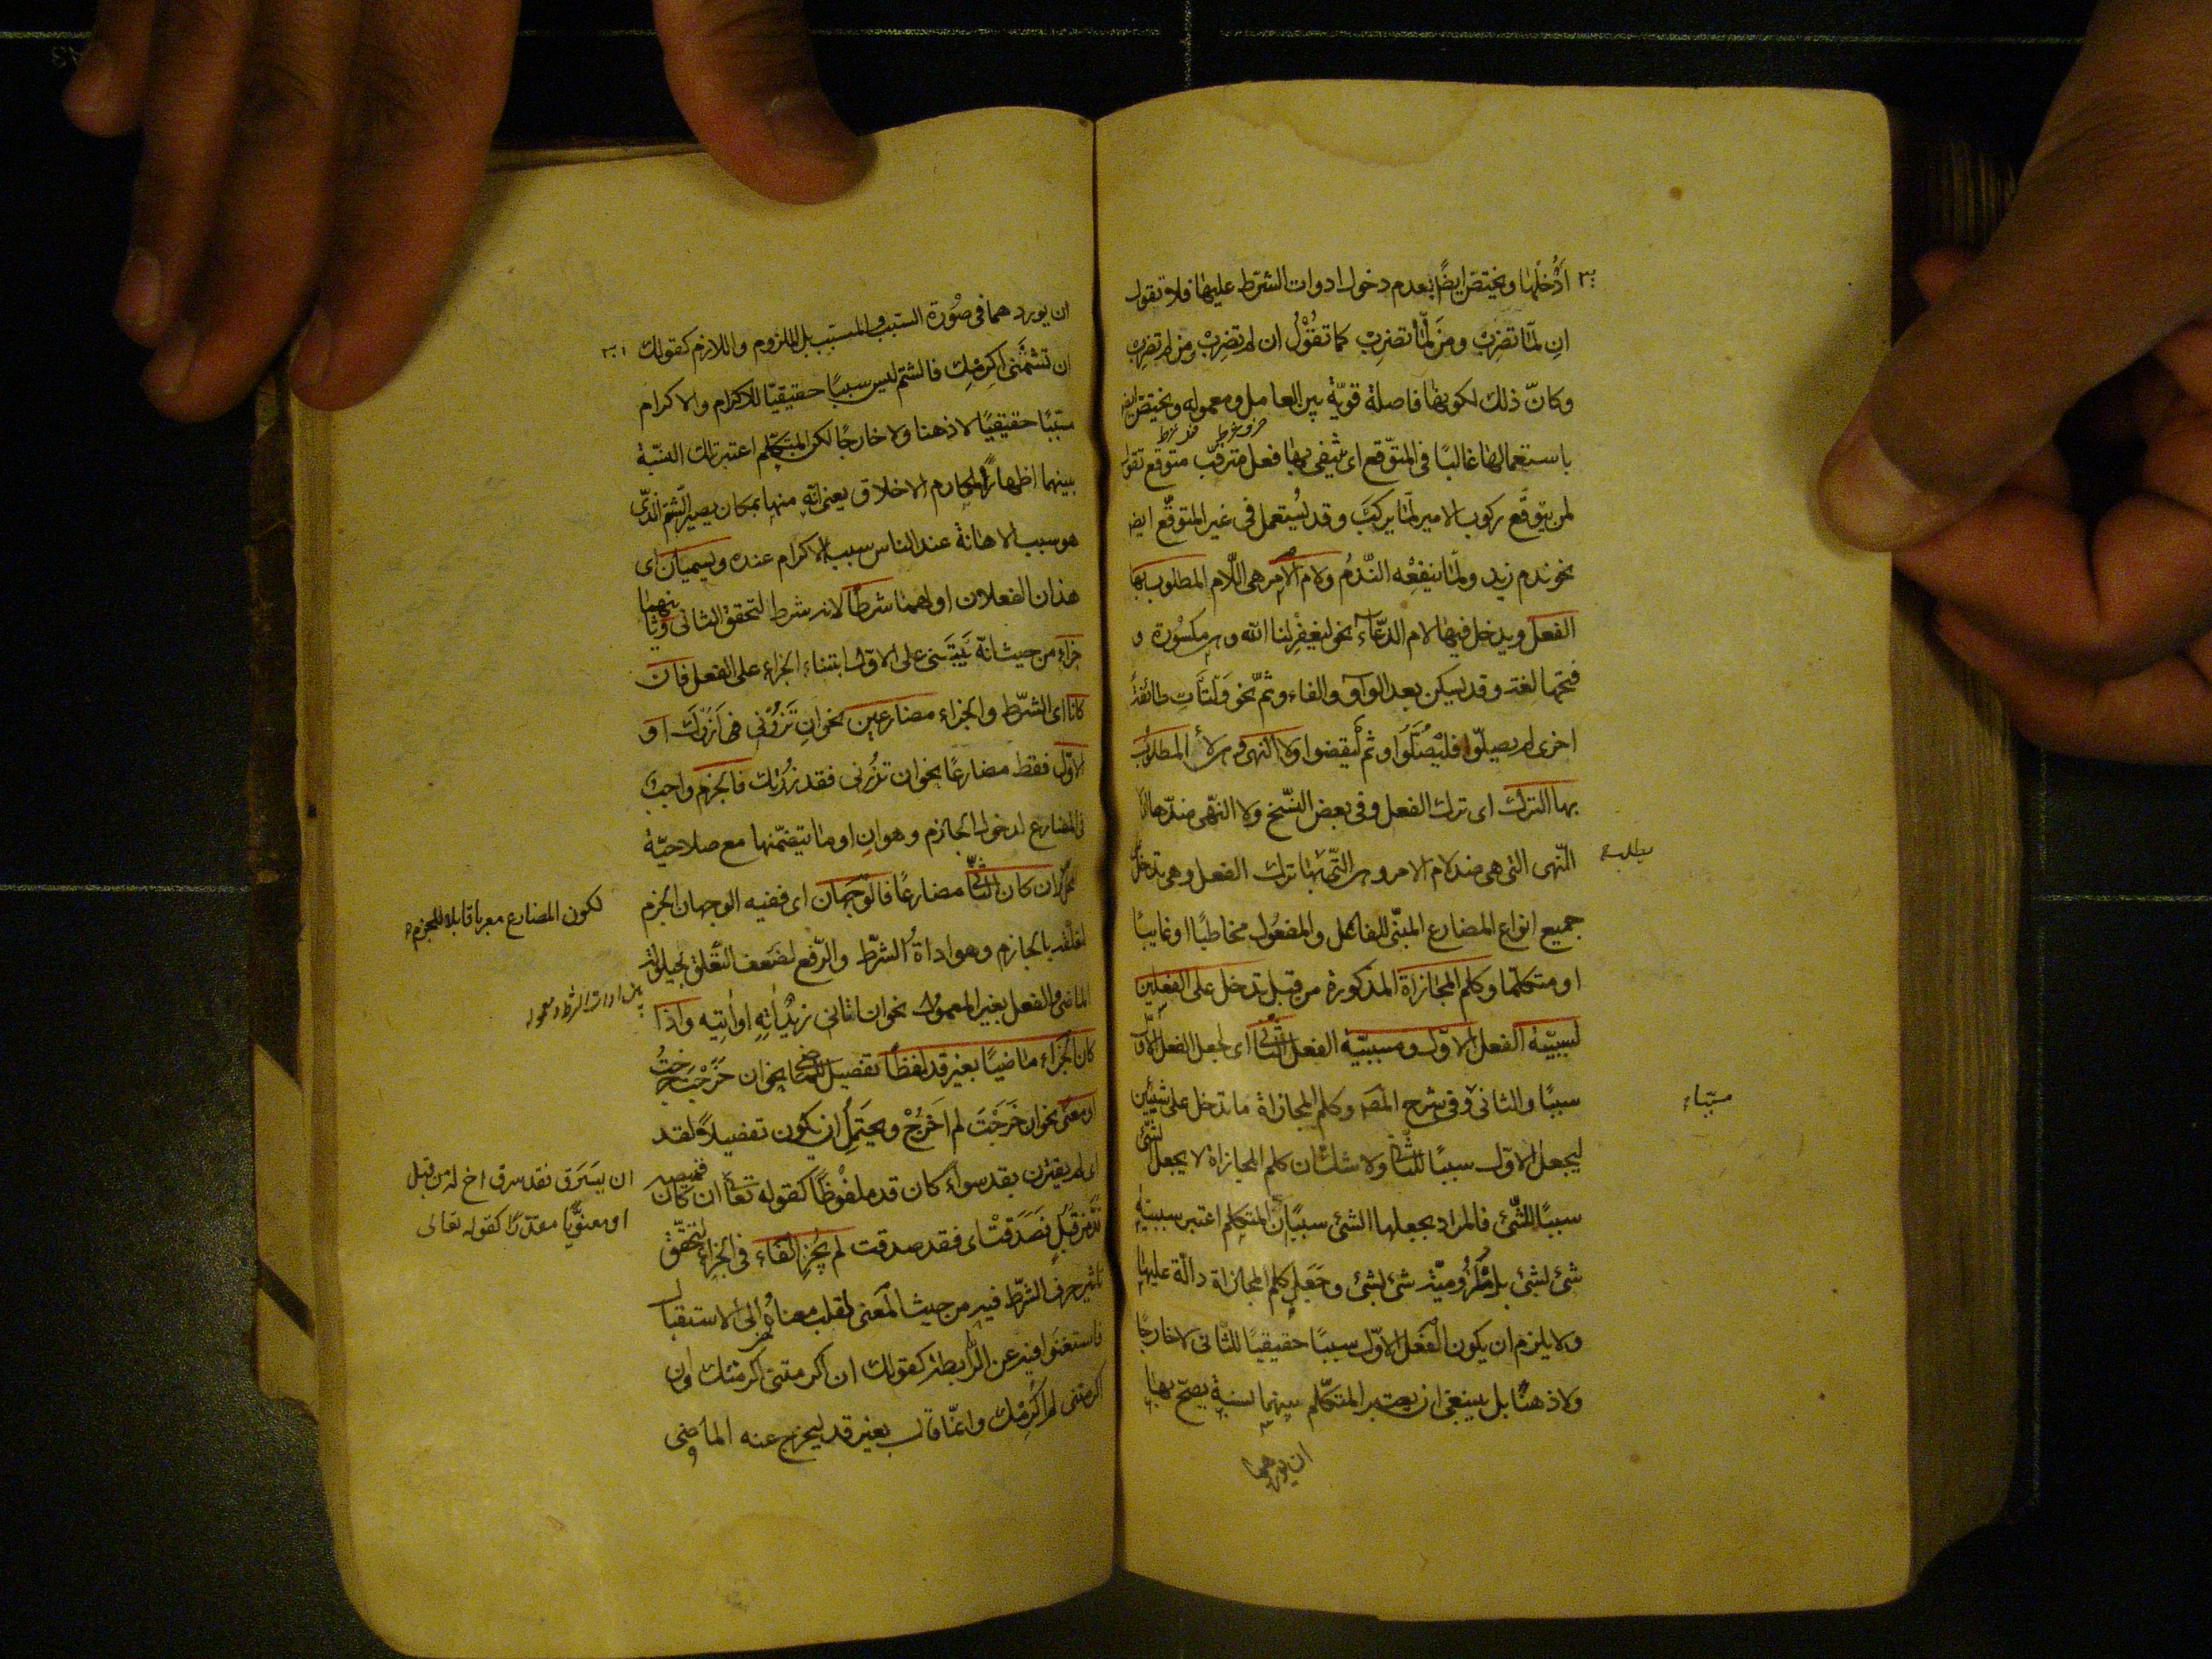 أدخلها ويختص ايضًا بعدم دخول ادوات الشرط عليها فلا تقول
ان لمّا تضرب ومن لمّا تضرب كما تقول ان لم تضرب ومن لم تضرب
وكانّ ذلك لكونها فاصلة قويّة بين العامل ومعموله ويختص ايضا
باستعمالها غالبًا فى المتوقع اى ينفى بها فعل مترقب متوقع تقول
لمن يتوقّع ركوب الامير لمّا يركب وقد يستعمل فى غير المتوقع ايضا
نحو ندم زيد ولمّا ينفعه الندم ولام الامر هى اللّام المطلوب بها
الفعل ويدخل فيها لام الدعاء نحو ليغفر لنا الله وهى مكسورة و
فتحها لغة وقد يسكن بعد الواو والفاء وثمّ نحو ولتأت طائفة
اخرى لم يصلّوا فليصلّوا وثم ليقضوا ولا النهى هى لا المطلوب
بها الترك اى ترك الفعل وفى بعض النسخ ولا النهى ضدّها اى
النهى التى هى ضد لام الامر وهى التى يطلب بها ترك الفعل وهى تدخل
جميع انواع المضارع المبنى للفاعل والمفعول مخاطبًا او غايبًا
او متكلما وكلم المجازاة المذكورة من قبل تدخل على الفعلين
لسببيّة الفعل الاوّل ومسببيّة الفعل الثانى اى لجعل الفعل الاول
سببًا والثانى وفى شرح المص وكلم المجازاة ما تدخل على شيئين
مسبّبا
ليجعل الاوّل سببًا للثانى ولا شك ان كلم المجازاة لا يجعل الشئ
سببًا للشئ فالمراد بجعلها الشئ سببًا ان المتكلم اعتبر سببية
شئ لشئ بل ملزوميّة شئ لشئ وجعل كلم المجازاة دالّة عليها
ولا يلزم ان يكون الفعل الاوّل سببًا حقيقيًا للثانى لا خارجًا
ولا ذهنًا بل ينبغى ان يعتبر المتكلّم بينهما نسبة يصحّ بها
ان يوردهما
ان يوردهما فى صورة السبب والمسبب بل الملزوم واللازم كقولك
ان تشتمنى اكرمك فالشتم ليس سببًا حقيقيًا للاكرام والاكرام
مسببًا حقيقيًا لا ذهنا ولا خارجًا لكن المتكلم اعتبر تلك النسبة
بينهما اظهارًا لمكارم الاخلاق يعنى انّه منها بمكان يصير الشتم الذى
هو سبب الاهانة عند الناس سبب الاكرام عنده ويسميان اى
هذان الفعلان اولهما شرطا لانه شرط لتحقق الثانى وثانيهما
جزاء من حيث انّه يبتنى على الاوّل ابتناء الجزاء على الفعل فان
كانا اى الشرط والجزاء مضارعين نحو ان تزرنى ازرك او
الاوّل فقط مضارعًا نحو ان تزرنى فقد زرتك فالجزم واجب
فى المضارع لدخول الجازم وهو ان او ما يتضمّنها مع صلاحيّة
المحل وان كان الثانى مضارعًا فالوجهان اى ففيه الوجهان الجزم
لكون المضارع معربا قابلا للجزم
لتعلقه بالجازم وهو اداة الشرط والرفع لضعف التعلق لحيلولة
الماضى والفعل بغير المعمول نحو ان اتانى زيد آته او آتيه واذا
بين ادات الشرط ومعموله
كان الجزاء ماضيًا بغير قد لفظا تفصيل للماضى نحو ان خرجت خرجت
او معنى نحو ان خرجت لم اخرج ويحتمل ان يكون تفصيلا لقد
اى لم يقترن بقد سواء كان قد ملفوظًا كقوله تعالى ان كان قميصه
ان يسرق فقد سرق اخ له من قبل
او معنويًّا مقدّرًا كقوله تعالى
قدّ من قبل فصدقت اى فقد صدقت لم يجز الفاء فى الجزاء لتحقّق
تأثير حرف الشرط فيه من حيث المعنى لقلب معناه الى الاستقبال
فاستغنوا فيه عن الرابطة كقولك ان اكرمتنى اكرمتك وان
اكرمتنى لم اكرمك وانما قال بغير قد ليخرج عنه الماضى